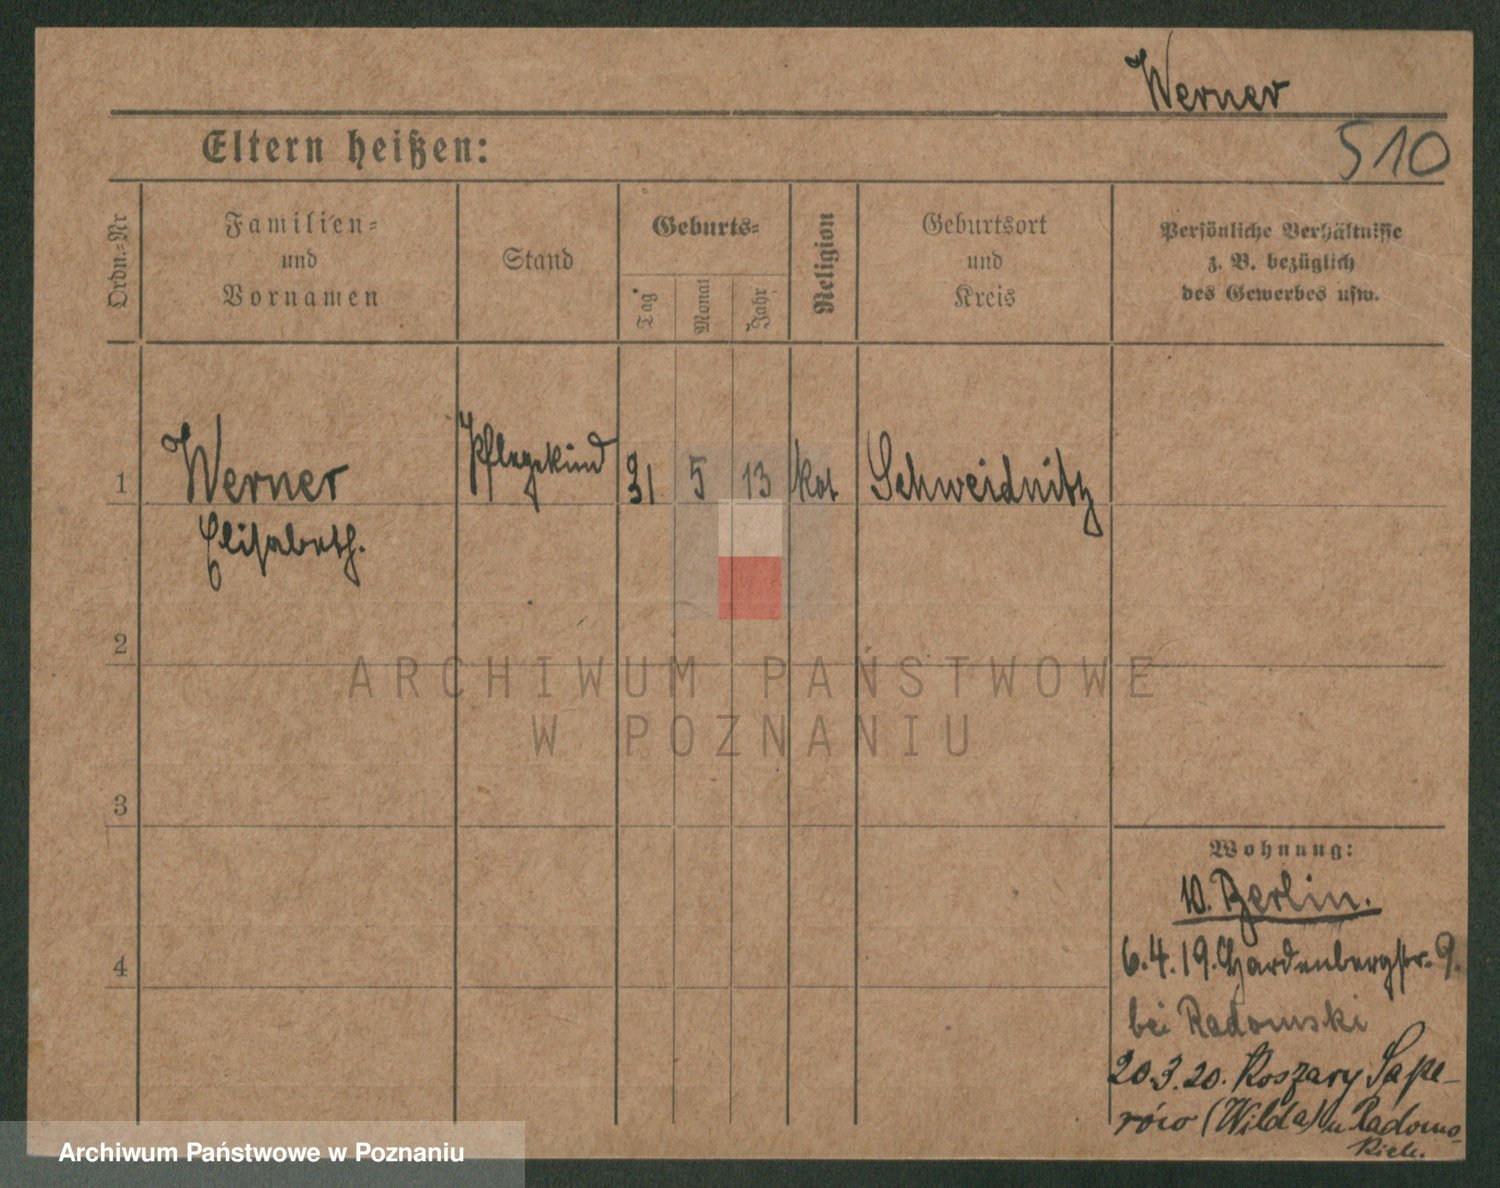 Werner
510
Eltern heißen:
Ordn.-Nr
Familien-
und
Vornamen
Stand
Geburts-
Tag
Monat
Jahr
Religion
Geburtsort
und
Kreis
Persönliche Verhältnisse
z. B. bezüglich
des Gewerbes usw.
1 Werner Pflegekind 31 5 13 kat Schweidnitz
Elisabeth.
2
ARCHIWUM PAŃSTWOWE
W POZNANIU
3
Wohnung:
W. Berlin.
6.4.19. Hardenbergstr. 9.
4
bei Radomski
20.3.20. Koszary Sape-
rów (Wilda) u Radoms-
kich.
Archiwum Państwowe w Poznaniu